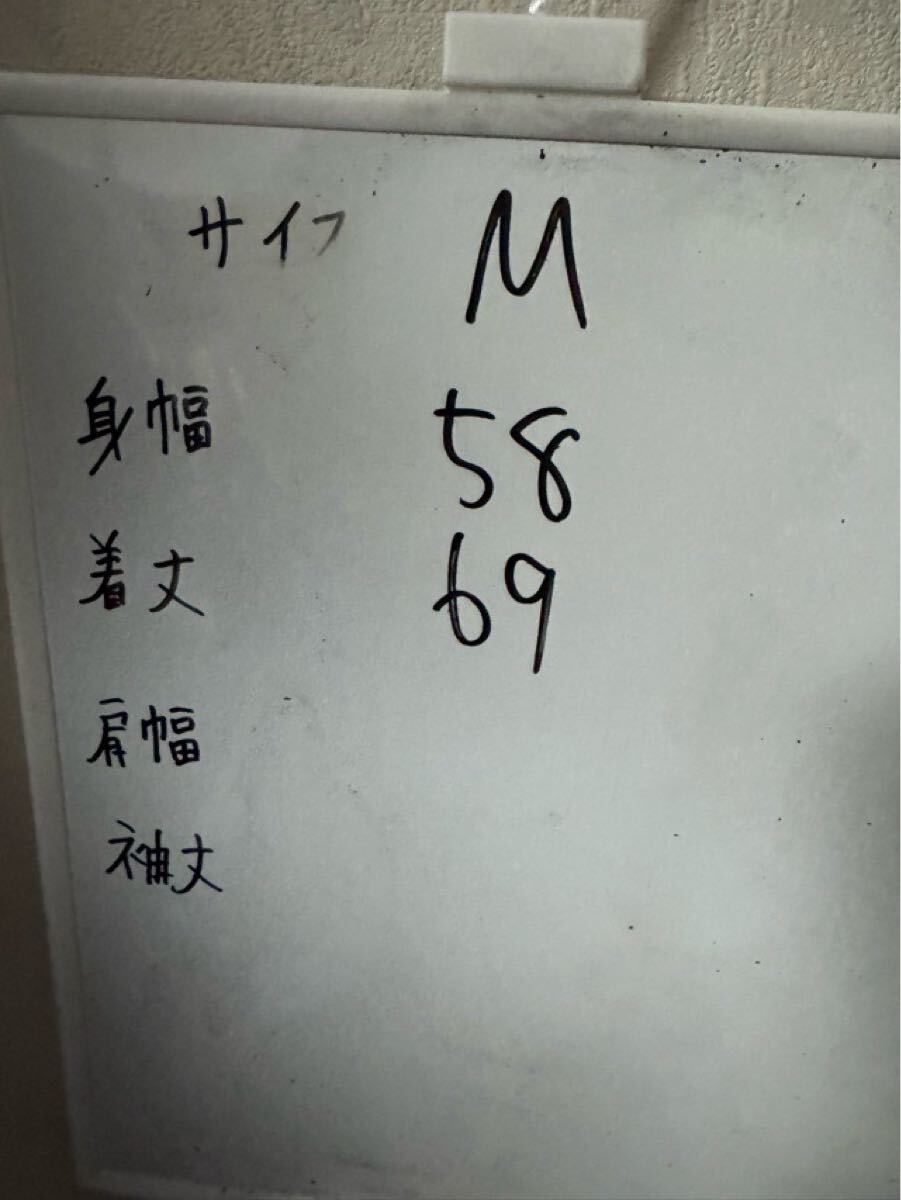 サイフ M
身幅 58
着丈 69
肩幅
袖丈